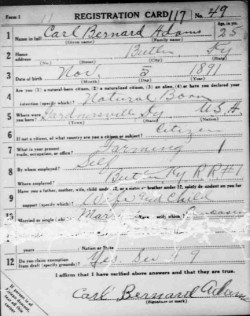 Form 1 REGISTRATION CARD 117 No. 49
1 Name in full Carl Bernard Adams Age, in yrs. 25
(Given name) (Family name)
2 Home address Butler Ky
3 Date of birth Nov. 3 1891
(Month) (Day) (Year)
4 Are you (1) a natural-born citizen, (2) a naturalized citizen, (3) an alien, (4) or have you declared your intention (specify which)? Natural Born
5 Where were you born? Ky U.S.A
6 If not a citizen, of what country are you a citizen or subject? Citizen
7 What is your present trade, occupation, or office? Farming 1
8 By whom employed? Self
Where employed? Butler Ky RR#1
9 Have you a father, mother, wife, child under 12, or a sister or brother under 12, solely dependent on you for support (specify which)? Wife and Child
10 Married or single (which)?
Nation or State
12 Do you claim exemption from draft (specify grounds)? Yes. See # 9
I affirm that I have verified above answers and that they are true.
Carl Bernard Adams
(Signature or mark)